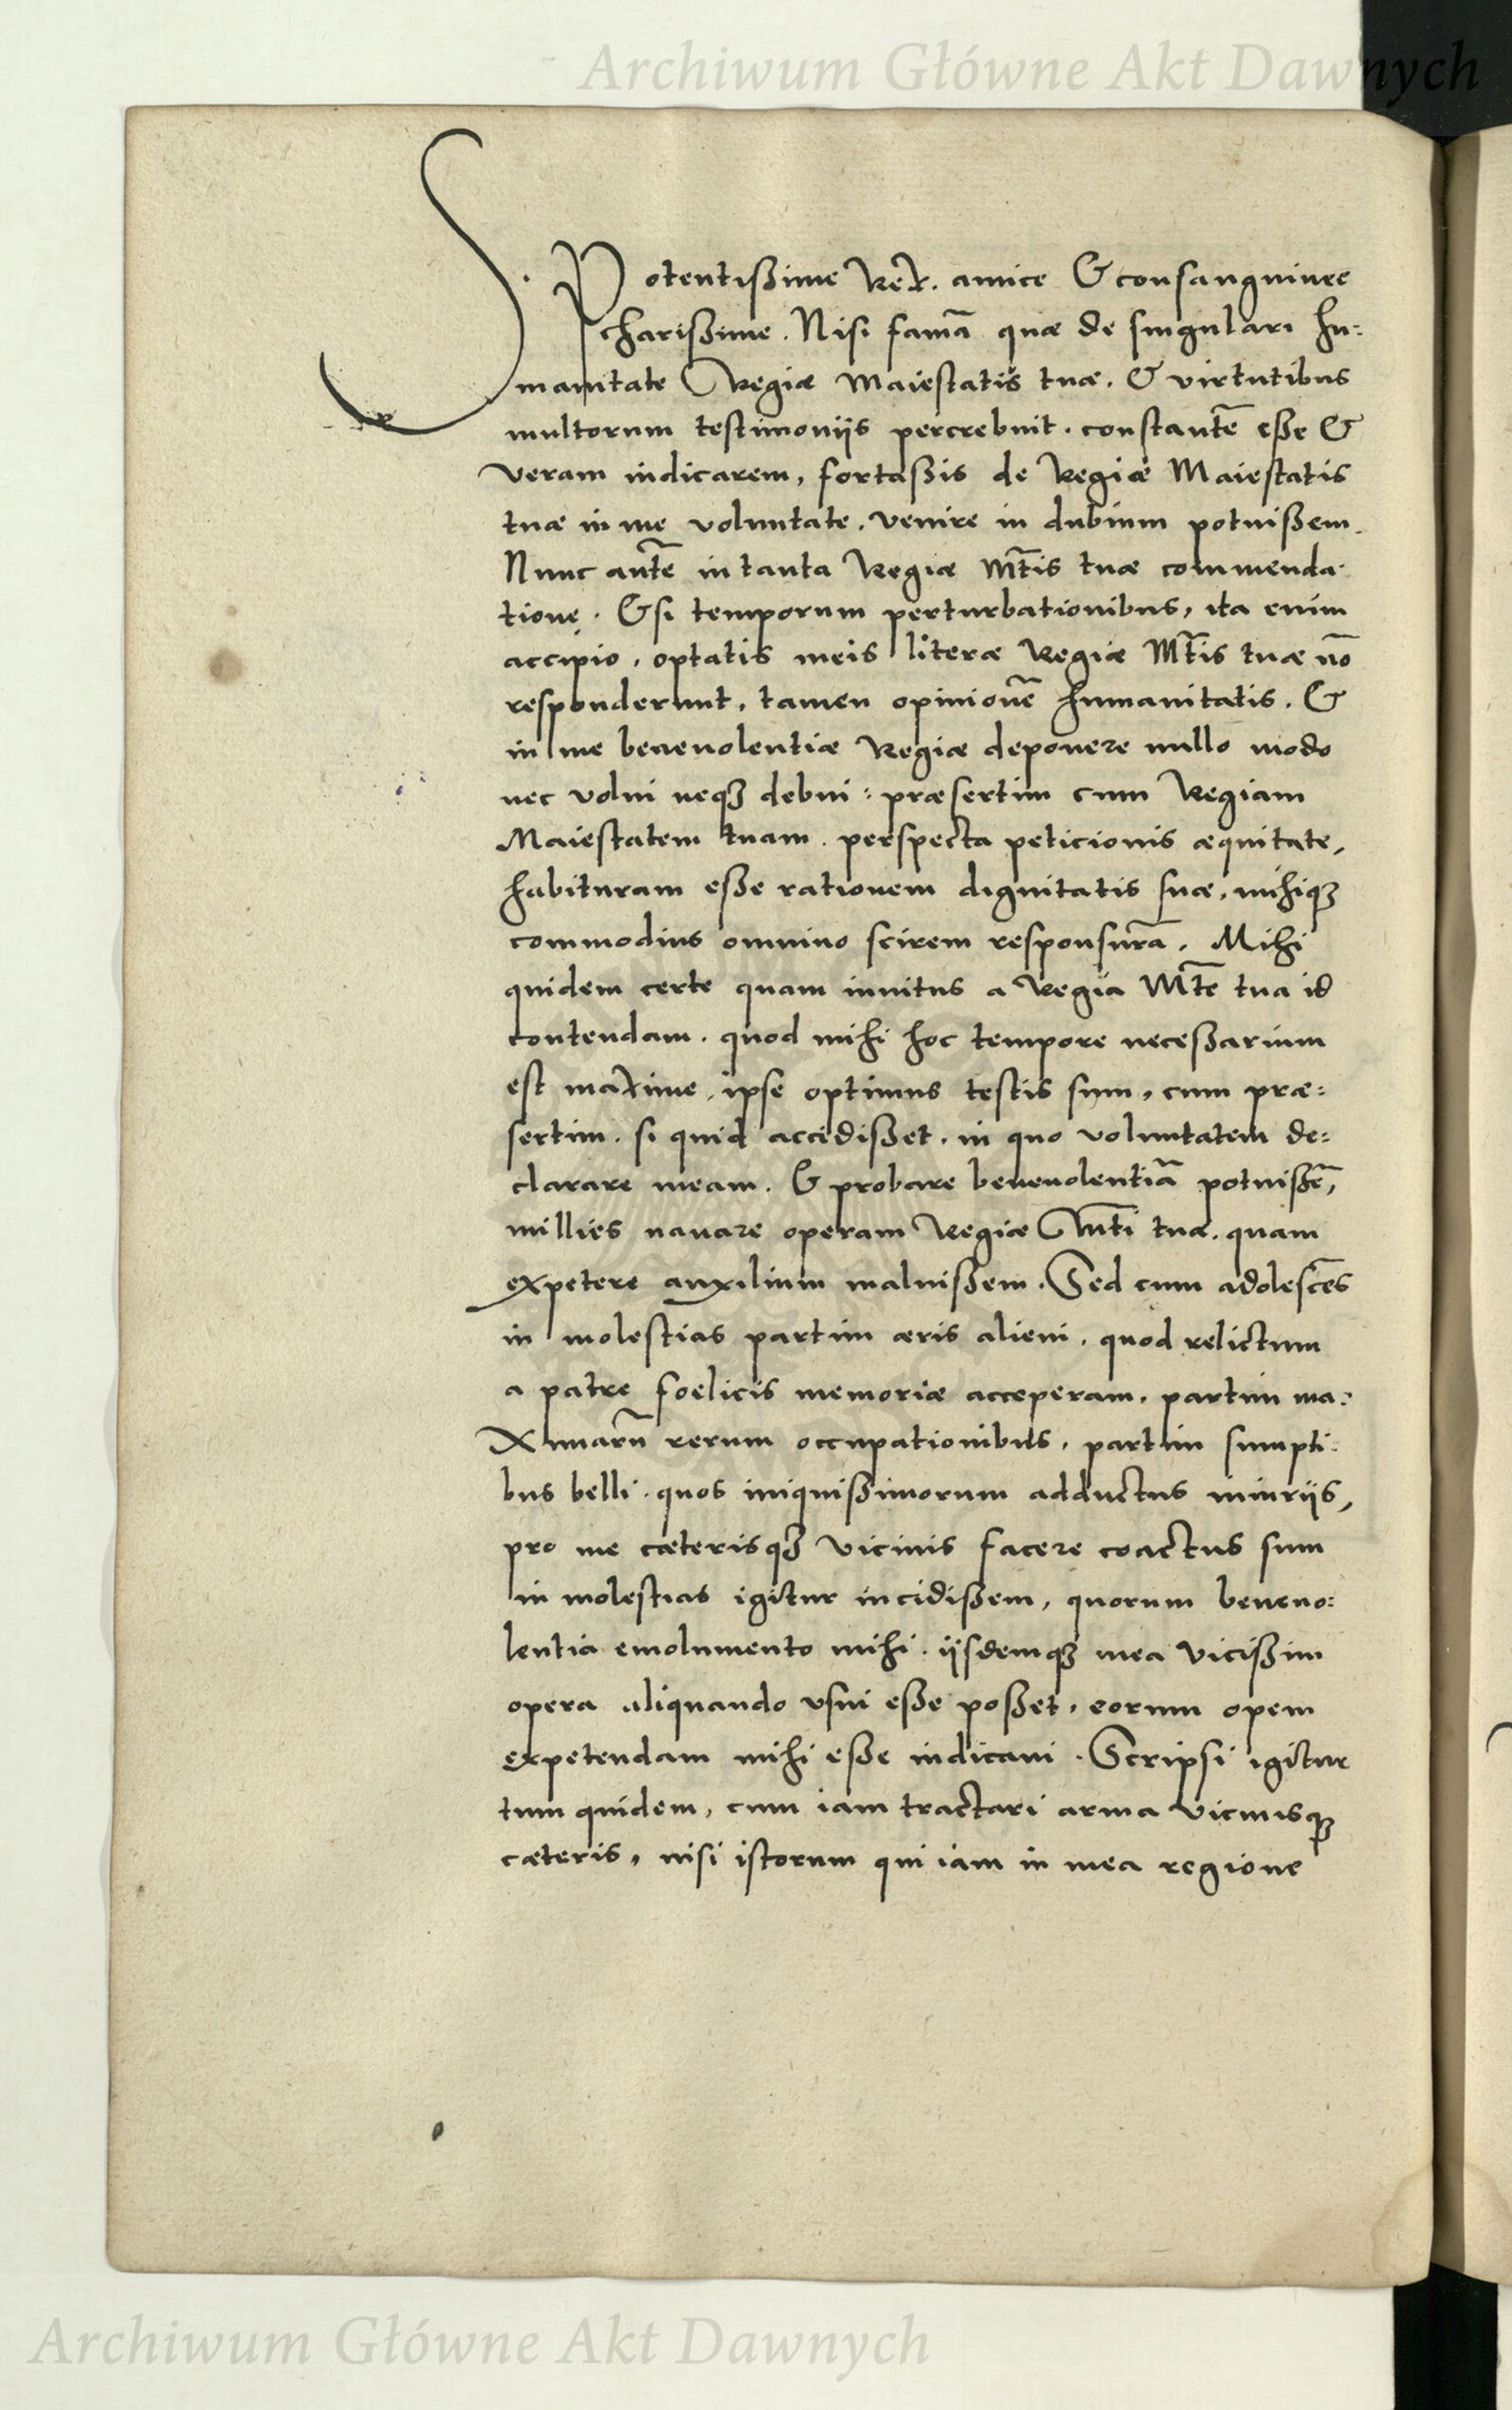 Archiwum Główne Akt Dawnych
S. Potentißime Rex. amice & consanguinee
charißime. Nisi famā quæ de singulari hu:
manitate Regiæ Maiestatis tuæ. & virtutibus
multorum testimoniis percrebuit. constantē eße &
veram iudicarem, fortaßis de Regiæ Maiestatis
tuæ in me voluntate. venire in dubium potuißem.
Nunc autē in tanta Regiæ Mt̄is tuæ commenda-
tione. Etsi temporum perturbationibus, ita enim
accipio, optatis meis literæ Regiæ Mt̄is tuæ nō
responderunt, tamen opinionē humanitatis. &
in me beneuolentiæ Regiæ deponere nullo modo
nec volui neqꝫ debui: præsertim cum Regiam
Maiestatem tuam. perspecta peticionis æquitate,
habituram eße rationem dignitatis suæ, mihiqꝫ
commodius omnino scirem responsurā. Mihi
quidem certe quam inuitus a Regia Mt̄e tua id
contendam. quod mihi hoc tempore neceßarium
est maxime, ipse optimus testis sum, cum præ:
sertim. si quid accidißet. in quo voluntatem de:
clarare meam. & probare beneuolentiā potuißē,
millies nauare operam Regiæ Mt̄i tuæ. quam
expetere auxilium maluißem. Sed cum adolescēs
in molestias partim æris alieni. quod relictum
a patre foelicis memoriæ acceperam. partim ma:
ximarū rerum occupationibus, partim sumpti:
bus belli. quos iniquißimorum adductus iniuriis,
pro me cæterisqꝫ vicinis facere coactus sum
in molestias igitur incidißem, quorum beneuo:
lentia emolumento mihi. iisdemqꝫ mea vicißim
opera aliquando vsui eße poßet, eorum opem
expetendam mihi eße iudicaui. Scripsi igitur
tum quidem, cum iam tractari arma vicinisqꝫ
cæteris, nisi istorum qui iam in mea regione
Archiwum Główne Akt Dawnych